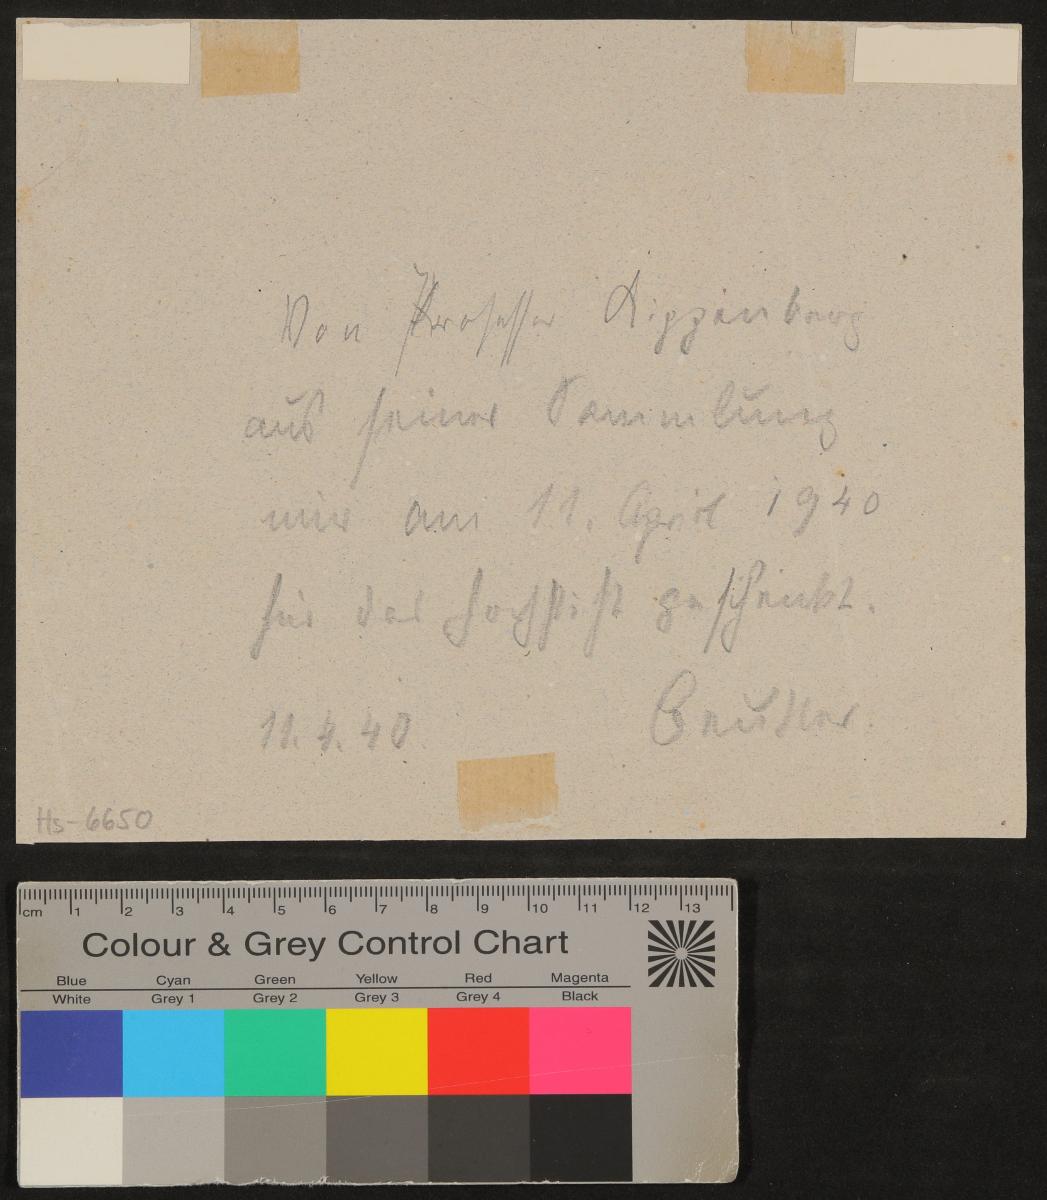 Von Professor Kippenberg
aus seiner Sammlung
mir am 11. April 1940
für das Hochstift geschenkt.
11.4.40. Beutler.
Hs-6650
cm 1 2 3 4 5 6 7 8 9 10 11 12 13
Colour & Grey Control Chart
Blue Cyan Green Yellow Red Magenta
White Grey 1 Grey 2 Grey 3 Grey 4 Black